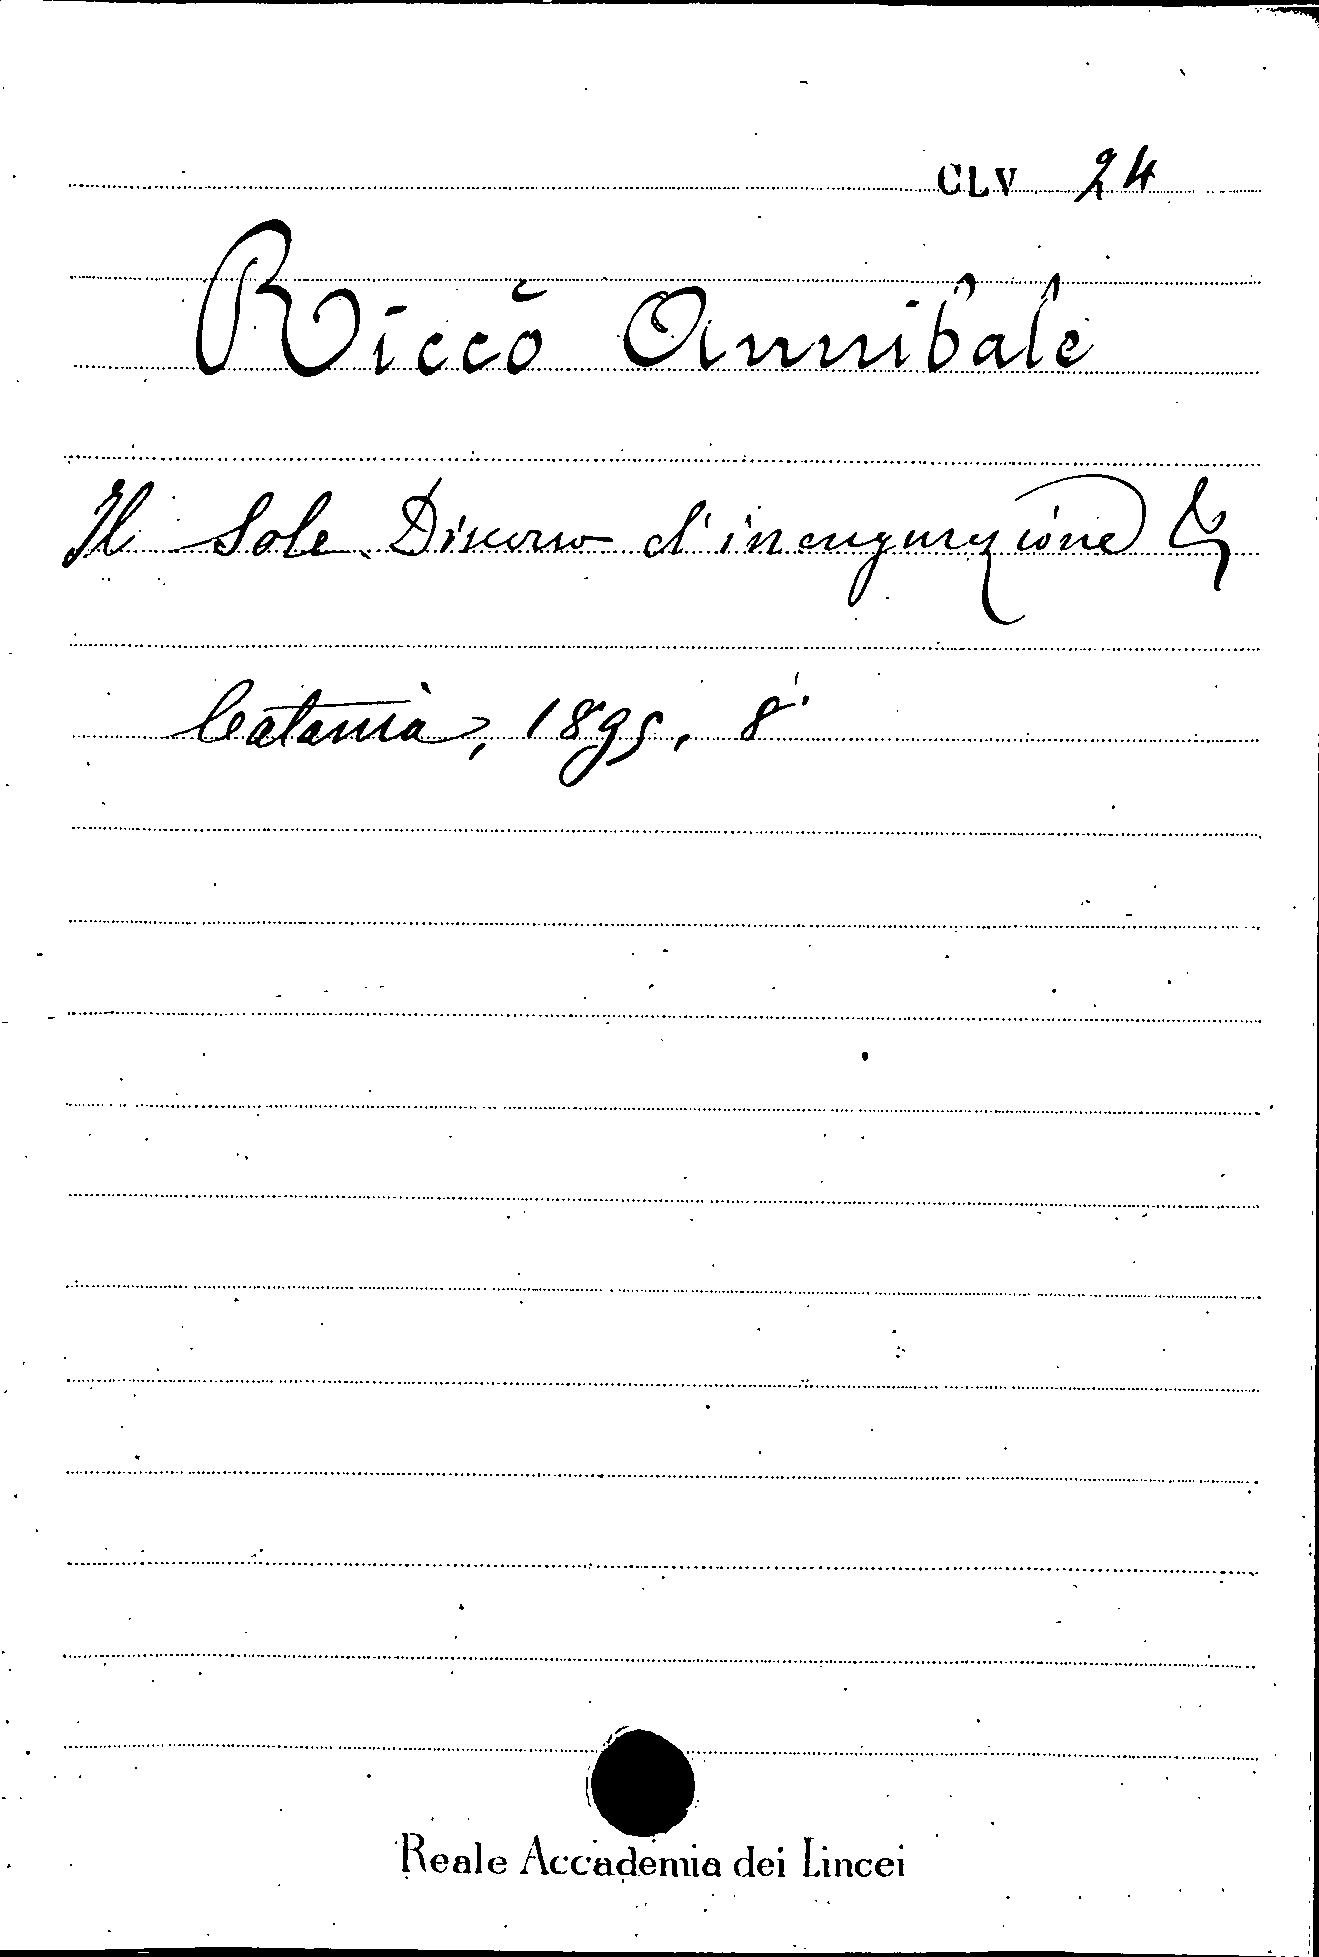 CLV 24
Riccò Annibale
Il Sole. Discorso d'inaugurazione &
Catania, 1895, 8°
Reale Accademia dei Lincei